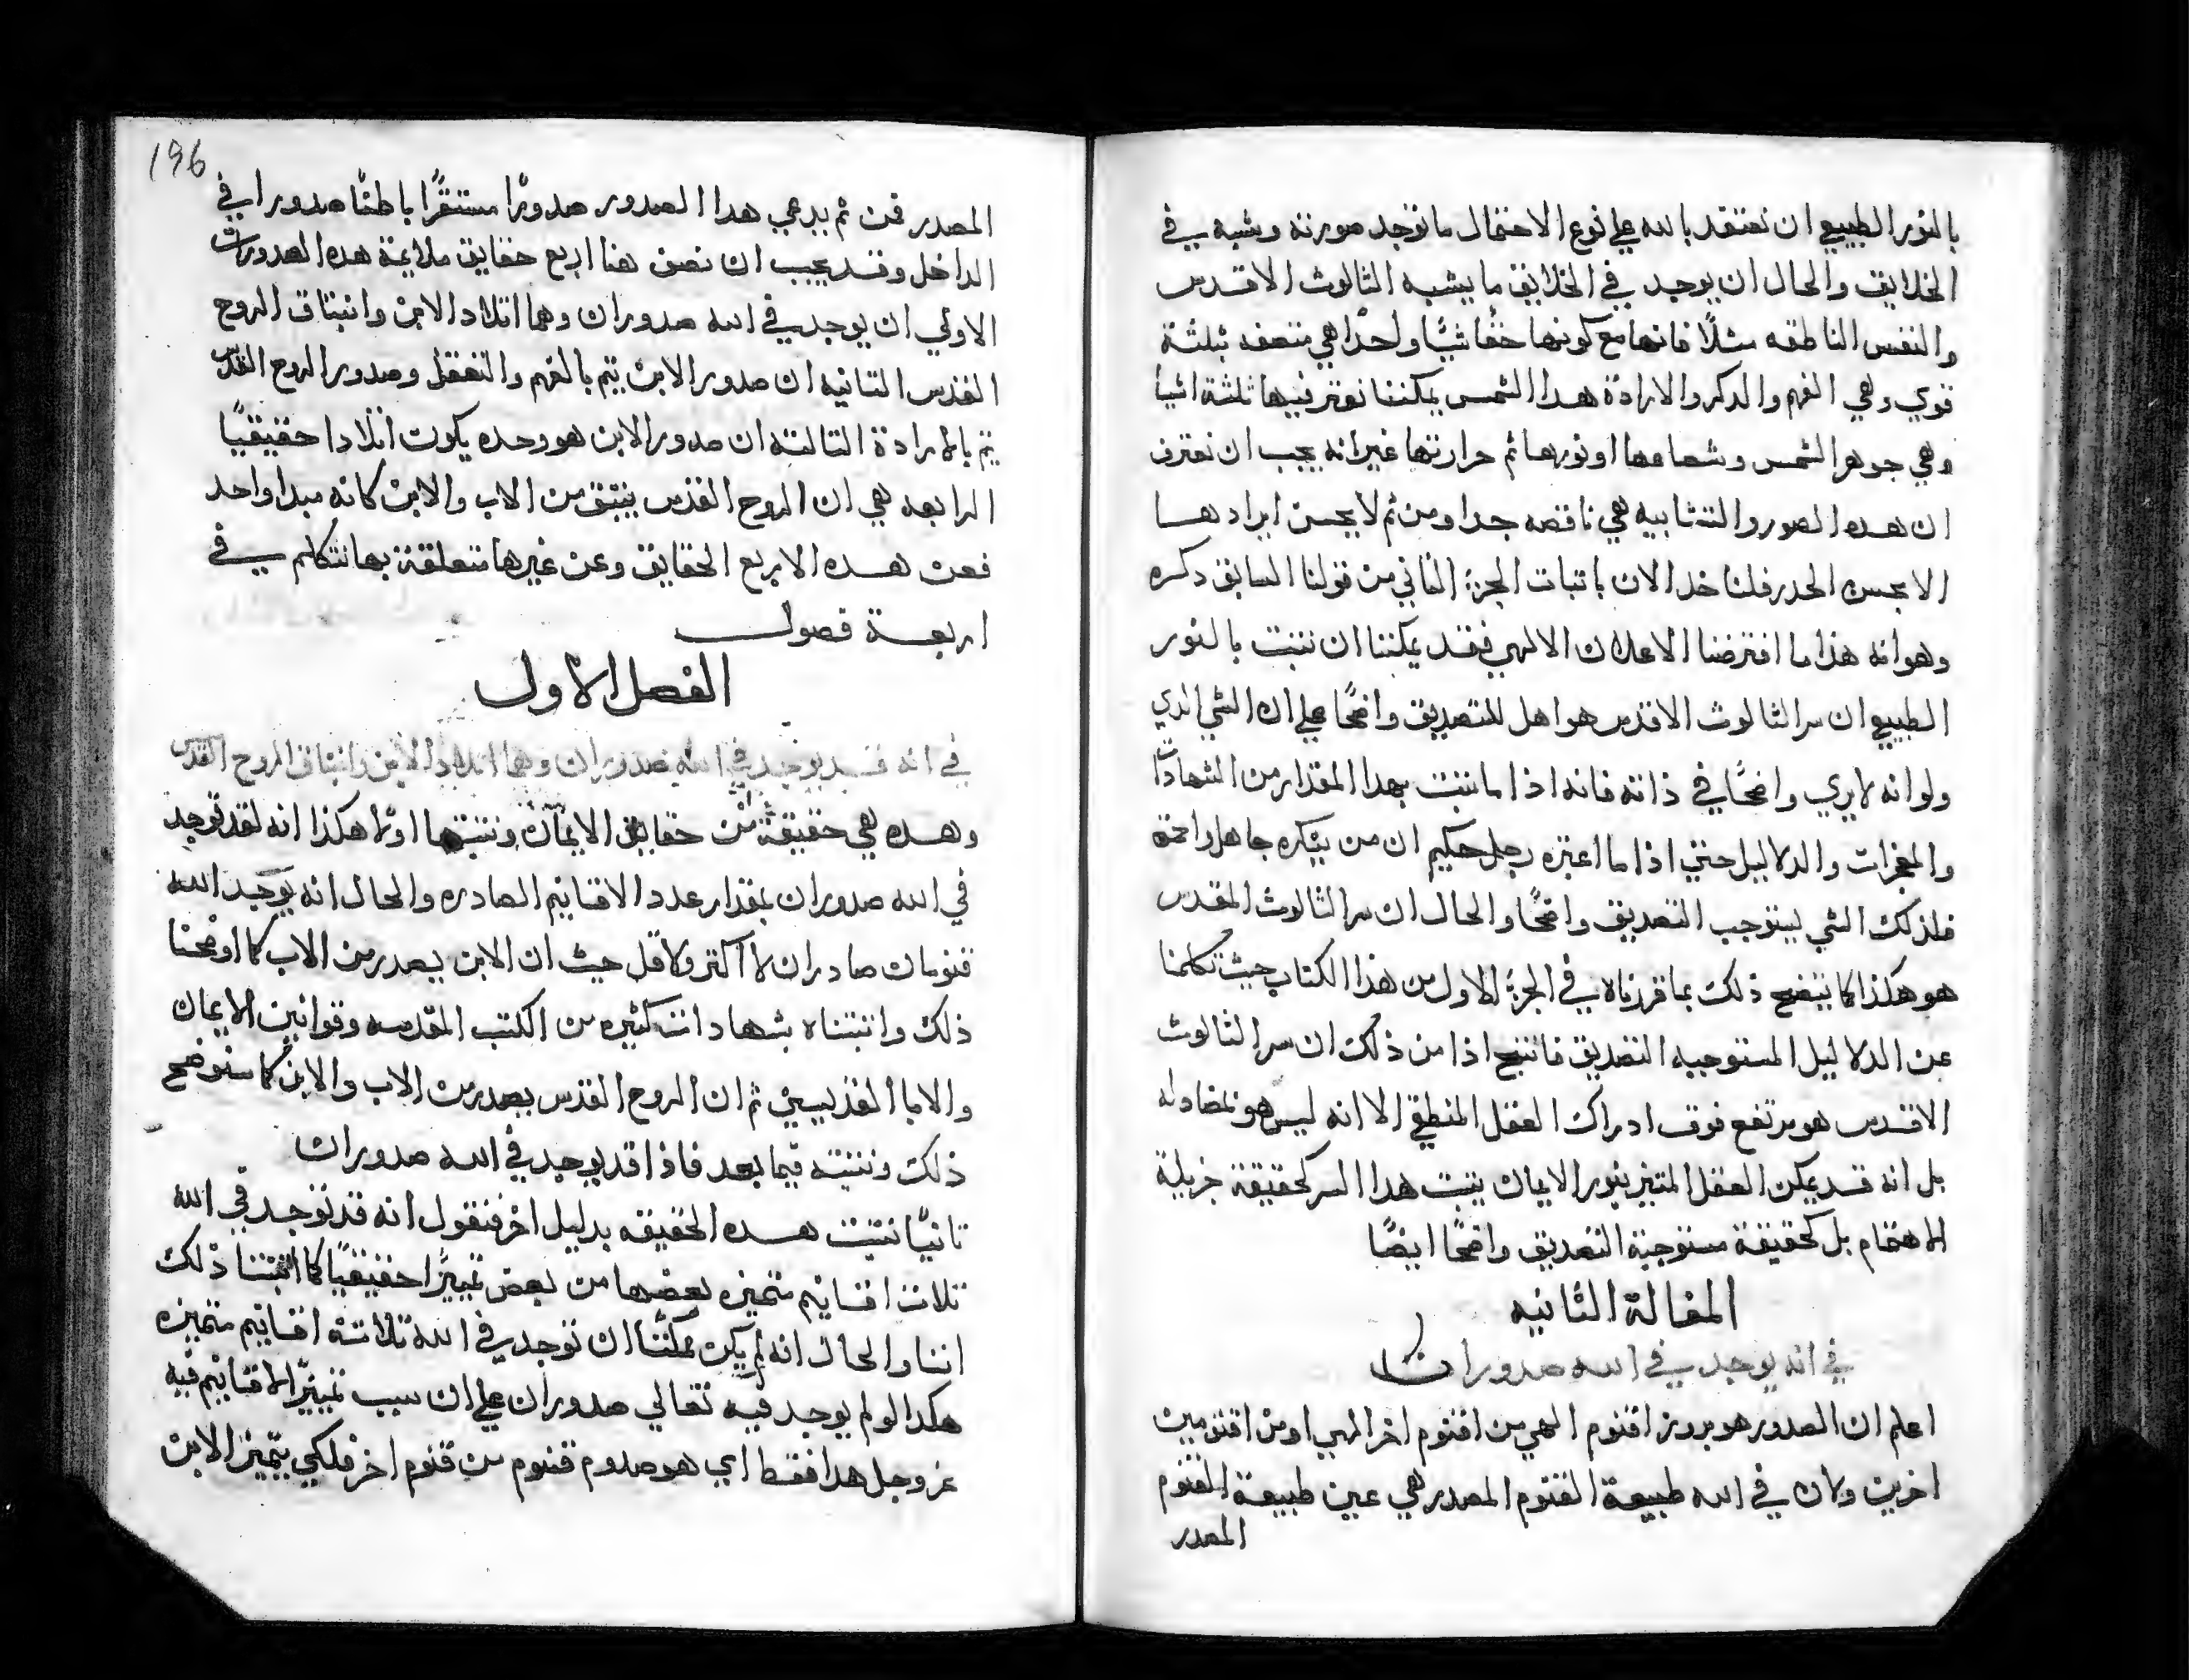 بالنور الطبيعي ان نعتقد بالله علي نوع الاحتمال ما توجد صورته وشبهه في
الخلايق والحال ان يوجد في الخلايق ما يشبه الثالوث الاقدس
والنفس الناطقه مثلًا فانها مع كونها حقًا شيًا واحدًا هي متصفه بثلثة
قوي وهي الفهم والدكر والارادة هدا الشمس يمكننا نعترف فيها ثلثة اشيا
وهي جوهر الشمس وشعاعها او نورها ثم حرارتها غير انه يجب ان نعترف
ان هده الصور والتشابيه هي ناقصه جدا ومن ثم لا يحسن ايرادها
الا بحسن الحدر فلناخد الان باتبات الجزء الثاني من قولنا السابق دكره
وهو انه هذا ما افترضنا الاعلان الالهي فقد يمكننا ان نتبت بالنور
الطبيعي ان سر الثالوث الاقدس هو اهل للتصديق واضحًا علي ان الشي الذي
ولو انه لا يري واضحًا في ذاته فانه اذا ما نتبت بهدا المقدار من الشهادات
والمعجزات والدلاليل حتي اذا ما اعتبره رجل حكيم ان من ينكره جاهل واحمق
فلذلك الشي يستوجب التصديق واضحًا والحال ان سر الثالوث المقدس
هو هكذا كما يتضح ذلك بما قررناه في الجزء الاول من هذا الكتاب حيث تكلمنا
عن الدلاليل المستوجبه التصديق فانتج اذا من ذلك ان سر الثالوث
الاقدس هو مرتفع فوق ادراك العقل المنطقي الا انه ليس هو بمضاد له
بل انه قد يمكن العقل المتيز بنور الايمان يتبت هدا السر كحقيقة جزيلة
الاهتمام بل كحقيقة مستوجبة التصديق واضحًا ايضًا
المقالة الثانيه
في انه يوجد في الله صدوران
اعلم ان الصدور هو بروز اقنوم الهي من اقنوم اخر الهي او من اقنومين
اخرين ولان في الله طبيعة القنوم المصدر هي عين طبيعة القنوم
المصدر
196
المصدر فمن ثم يدعي هدا الصدور صدورًا مستقرًا باطنًا صدورا في
الداخل وقد يجب ان نصف هنا اربع حقايق ملايمة هده الصدورات
الاولي ان يوجد في الله صدوران وهما اتلاد الابن وانبتاق الروح
القدس التانيه ان صدور الابن يتم بالفهم والتعقل وصدور الروح القدس
يتم بالارادة التالته ان صدور الابن هو وحده يكون اتلادا حقيقيًا
الرابعه هي ان الروح القدس ينبتق من الاب والابن كانه مبدا واحد
فعن هده الاربع الحقايق وعن غيرها متعلقة بها نتكلم في
اربعة فصول
الفصل الاول
في انه قد يوجد في الله صدوران وهما اتلاد الابن وانبتاق الروح القدس
وهده هي حقيقة من حقايق الايمان ونتبتها اولا هكذا انه لقد توجد
في الله صدوران بمقدار عدد الاقانيم الصادره والحال انه يوجد الله
قنومان صادران لا اكتر ولا اقل حيث ان الابن يصدر من الاب كما اوضحنا
ذلك واتبتناه بشهادات كثيره من الكتب المقدسه وقوانين الايمان
والابا القديسين ثم ان الروح القدس يصدر من الاب والابن كما سنوضح
ذلك ونتبته فيما بعد فاذا قد يوجد في الله صدوران
تانيًا نتبت هده الحقيقه بدليل اخر فنقول انه قد توجد في الله
تلات اقانيم متميزه بعضها من بعض تمييزًا حقيقيًا كما اتبتنا ذلك
اننا والحال انه لم يكن ممكنًا ان توجد في الله تلاتة اقانيم متميزه
هكدا لو لم يوجد فيه تعالي صدوران علي ان سبب تمييز الاقانيم فيه
عز وجل هدا فقط اي هو صدوم قنوم من قنوم اخر فلكي يتميز الابن